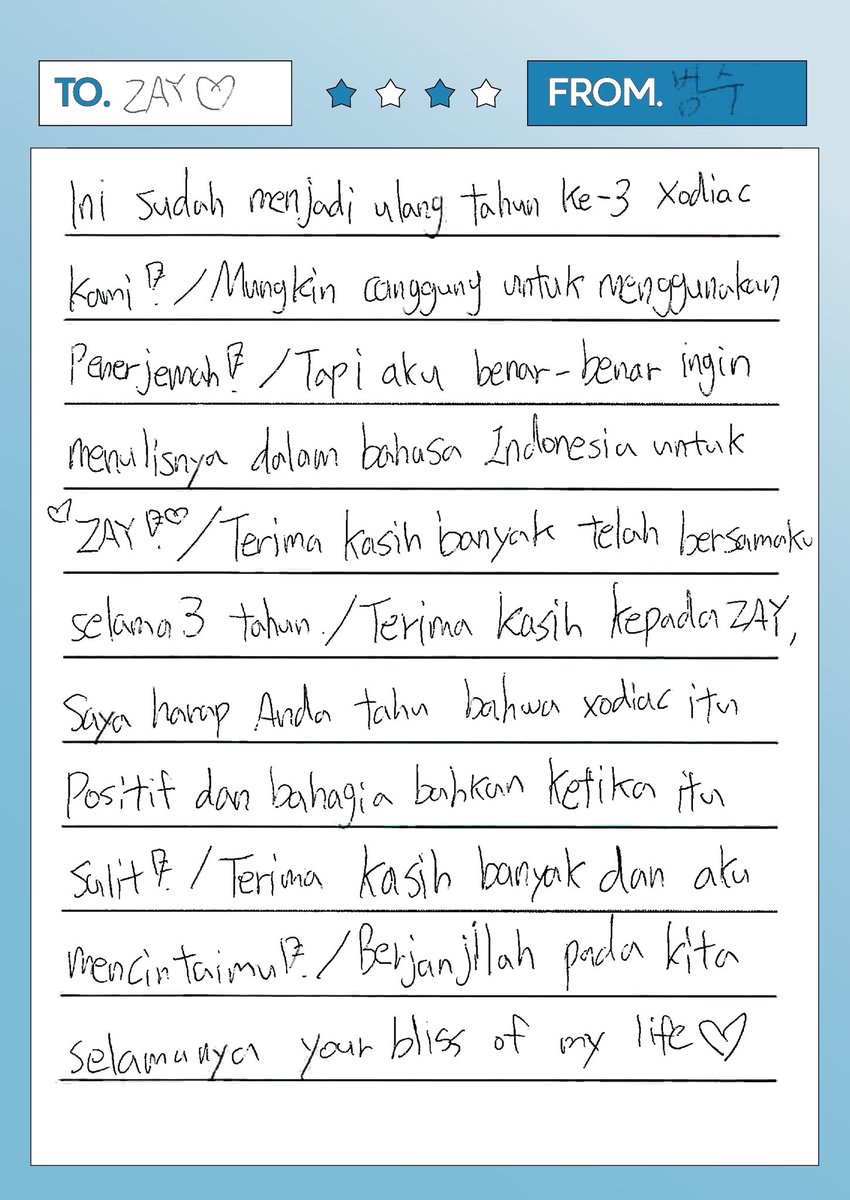 TO. ZAY♡
FROM. 범수
Ini sudah menjadi ulang tahun ke-3 xodiac
kami! / Mungkin canggung untuk menggunakan
Penerjemah! / Tapi aku benar-benar ingin
menulisnya dalam bahasa Indonesia untuk
♡ZAY!♡ / Terima kasih banyak telah bersamaku
selama 3 tahun. / Terima kasih kepada ZAY,
Saya harap Anda tahu bahwa xodiac itu
Positif dan bahagia bahkan ketika itu
sulit! / Terima kasih banyak dan aku
mencintaimu! / Berjanjilah pada kita
selamanya your bliss of my life♡